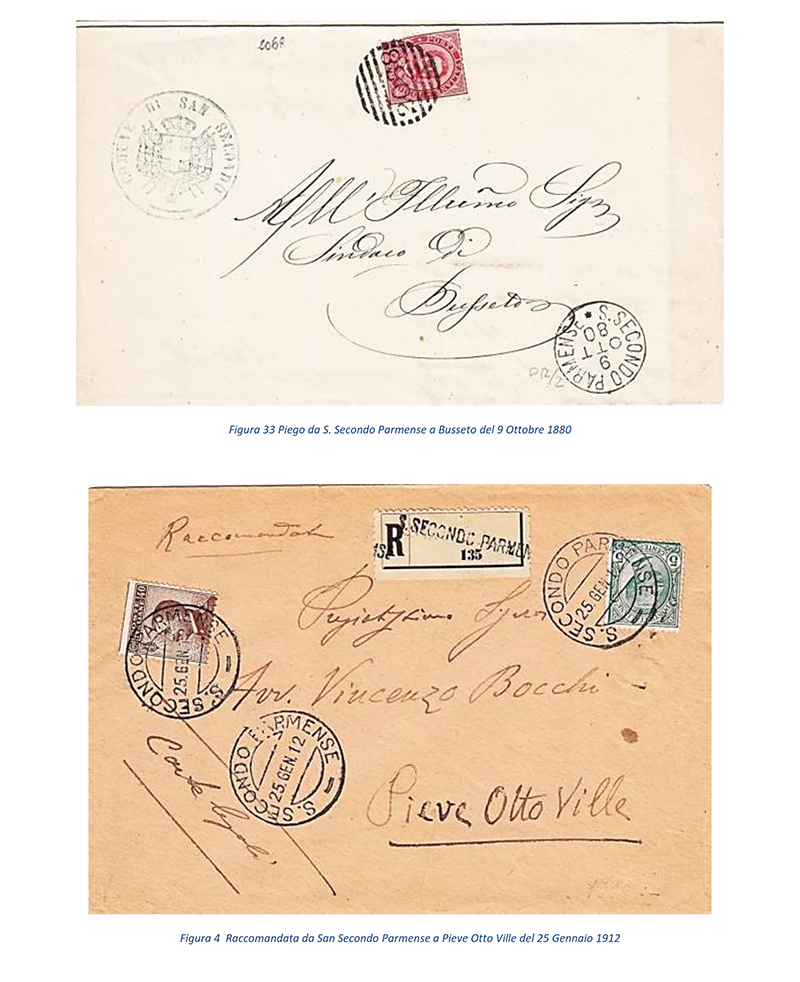 2068
COMUNE DI SAN SECONDO
All' Illusmo Sigr
Sindaco di
Busseto
S. SECONDO PARMENSE *
9
OTT
80
PR/2
Figura 33 Piego da S. Secondo Parmense a Busseto del 9 Ottobre 1880
Raccomandata
R
S. SECONDO PARMEN
135
S. SECONDO PARMENSE
25.GEN.12
S. SECONDO PARMENSE
25.GEN.12
Avv. Vincenzo Bocchi
S. SECONDO PARMENSE
25.GEN.12
Carte legali
Pieve Otto Ville
Figura 4 Raccomandata da San Secondo Parmense a Pieve Otto Ville del 25 Gennaio 1912